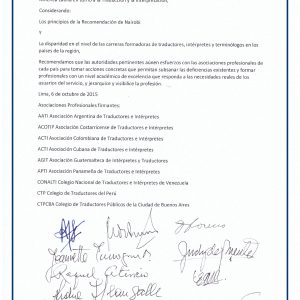 Considerando:
Los principios de la Recomendación de Nairobi
Y
La disparidad en el nivel de las carreras formadoras de traductores, intérpretes y terminólogos en los
países de la región,
Recomendamos que las autoridades pertinentes aúnen esfuerzos con las asociaciones profesionales de
cada país para tomar acciones concretas que permitan subsanar las deficiencias existentes y formar
profesionales con un nivel académico de excelencia que responda a las necesidades reales de los
usuarios del servicio, y jerarquice y visibilice la profesión.
Lima, 6 de octubre de 2015
Asociaciones Profesionales firmantes:
AATI Asociación Argentina de Traductores e Intérpretes
ACOTIP Asociación Costarricense de Traductores e Intérpretes
ACTI Asociación Colombiana de Traductores e Intérpretes
ACTI Asociación Cubana de Traductores e Intérpretes
AGIT Asociación Guatemalteca de Intérpretes y Traductores
APTI Asociación Panameña de Traductores e Intérpretes
CONALTI Colegio Nacional de Traductores e Intérpretes de Venezuela
CTP Colegio de Traductores del Perú
CTPCBA Colegio de Traductores Públicos de la Ciudad de Buenos Aires